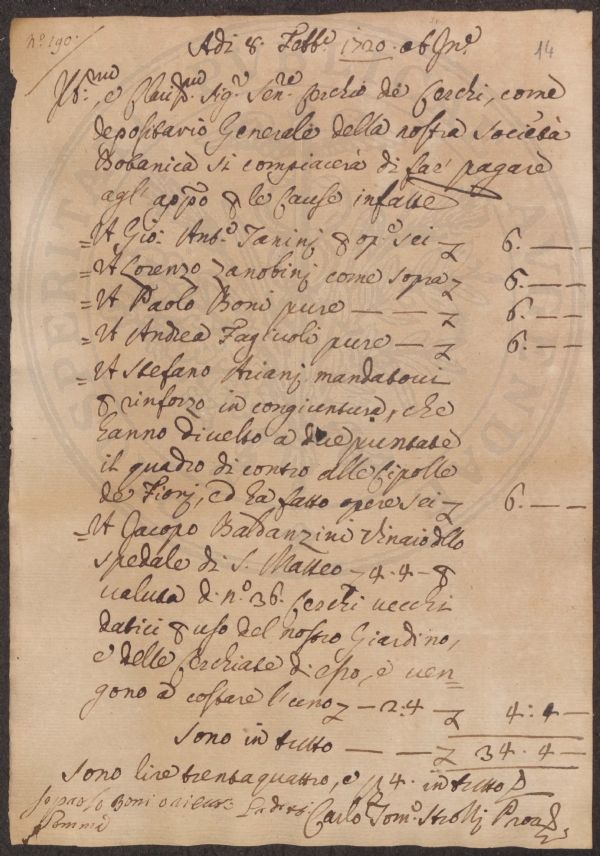 n.º 190.
Adi 8. Febb.º 1720. ab In.e
14
Ill.mo e Clariss.mo Sig.r Sen.re Cerchio de Cerchi, come
depositario Generale della nostra società
Botanica si compiacerà di far pagare
agl' app.o p le Cause infatte
= A Gio: Ant.o Taninj p op.e sei L 6. — —
= A Lorenzo Zanobinj come sopra L 6. — —
= A Paolo Boni pure — — — L 6. — —
= A Andrea Fagiuoli pure — L 6. — —
= A Stefano Arianj mandatovi
p rinforzo in congiuntura, che
hanno divelto a due puntate
il quadro di contro alle Cipolle
de Fiorj, ed ha fatto opere sei L 6. — —
= A Jacopo Baldanzini Vinaio dllo
spedale di S. Matteo L 4. 4 — p
valuta d. n.º 36. Cerchi vecchi
datici p uso del nostro Giardino,
e delle Cerchiate di esso, e ven=
gono a costare l'uno L — 2:4 — L 4: 4 —
Sono in tutto — — — L 34. 4 —
Sono lire trentaquattro, e 4. in tutto
Io paolo Boni
Carlo Tom.o Strozzj